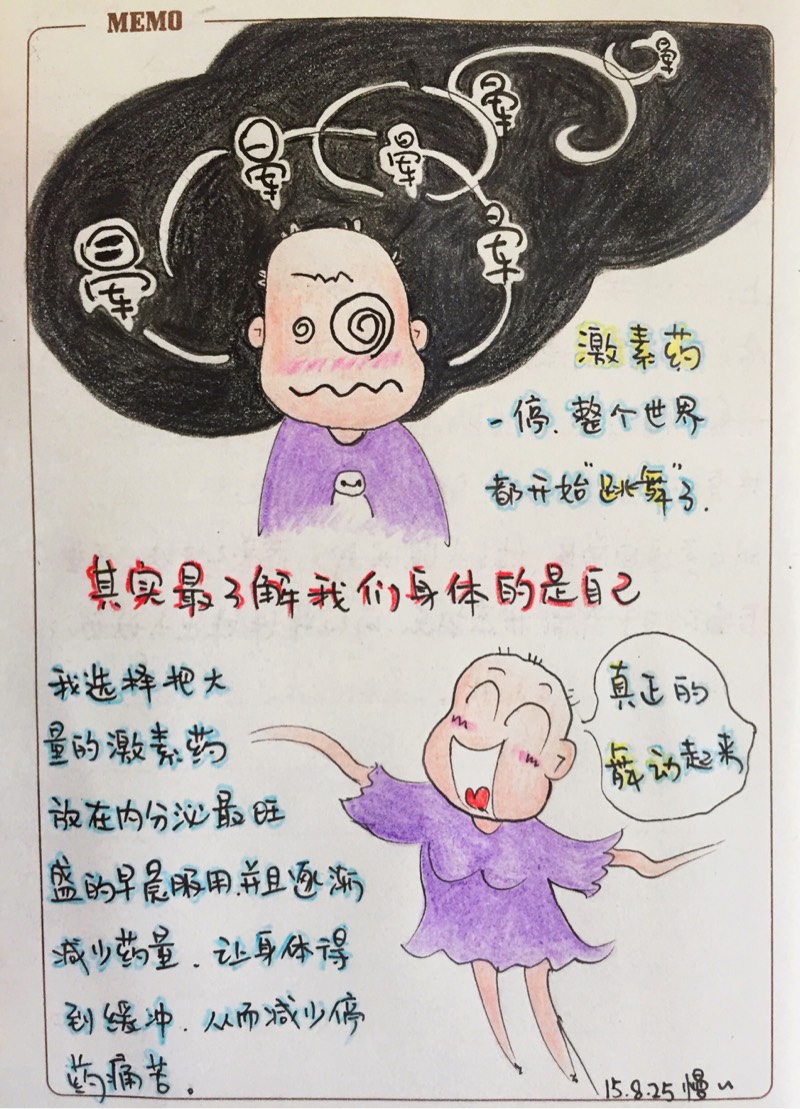 MEMO
晕
晕
晕
晕
晕
晕
激素药
一停、整个世界
都开始"跳舞"了.
其实最了解我们身体的是自己
真正的
舞动起来
我选择把大
量的激素药
放在内分泌最旺
盛的早晨服用.并且逐渐
减少药量、让身体得
到缓冲、从而减少停
药痛苦。
15.8.25慢